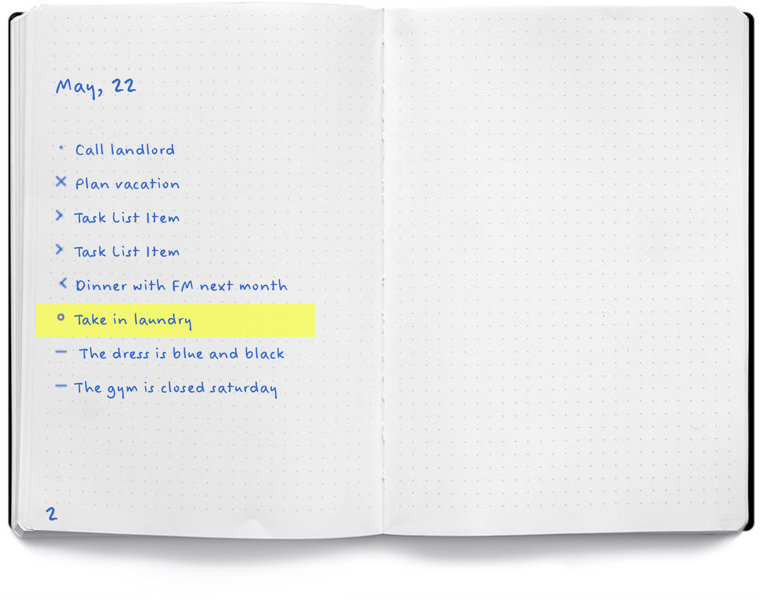 May, 22
· Call landlord
× Plan vacation
> Task List Item
> Task List Item
< Dinner with FM next month
o Take in laundry
– The dress is blue and black
– The gym is closed saturday
2